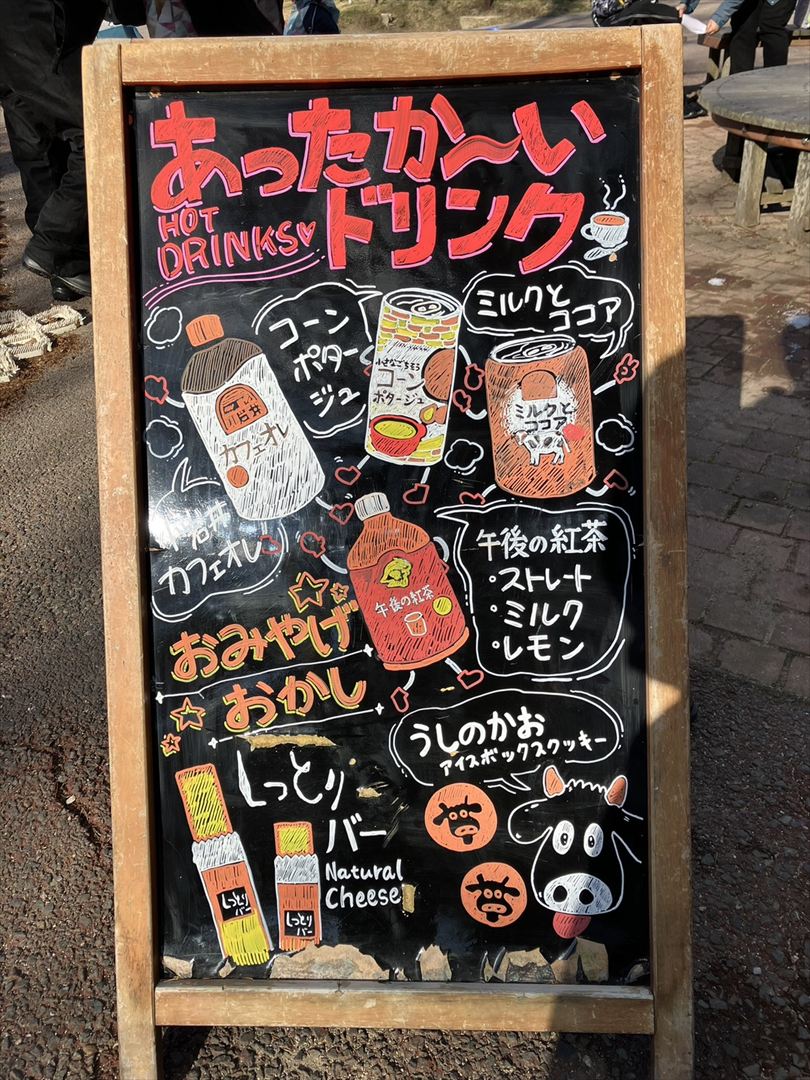 あったか〜い
HOT
DRINKS♡
ドリンク
コーン
ポター
ジュ
ミルクと
ココア
小さなごちそう
コーン
ポタージュ
ミルクと
ココア
小岩井
カフェオレ
小岩井
カフェオレ
午後の紅茶
午後の紅茶
・ストレート
・ミルク
・レモン
おみやげ
おかし
うしのかお
アイスボックスクッキー
しっとり
バー
Natural
Cheese
しっとり
バー
しっとり
バー